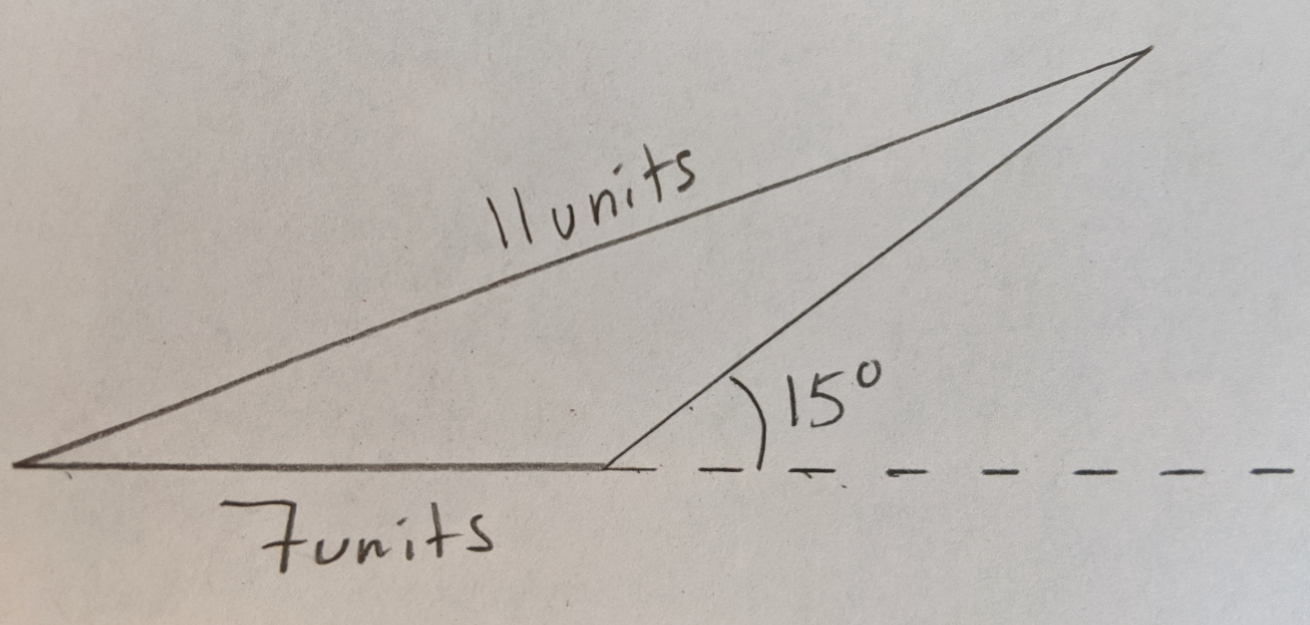 11 units
15°
7 units